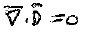 ∇̅·D̅ =0